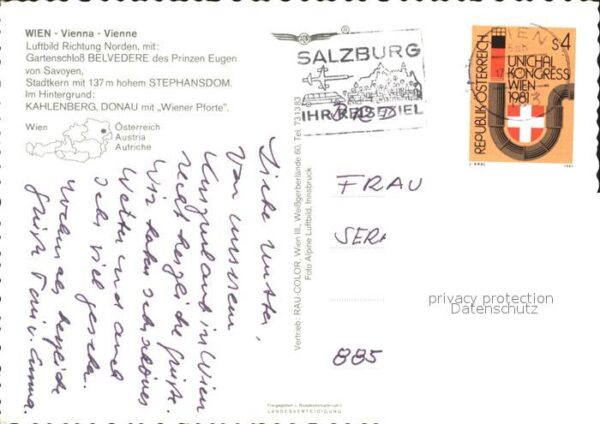 WIEN - Vienna - Vienne
Luftbild Richtung Norden, mit:
Gartenschloß BELVEDERE des Prinzen Eugen
von Savoyen,
Stadtkern mit 137 m hohem STEPHANSDOM.
Im Hintergrund:
KAHLENBERG, DONAU mit „Wiener Pforte".
Wien
Österreich
Austria
Autriche
Liebe Mutter,
Von unserem
Kurzurlaub in Wien
recht herzliche Grüße.
Wir haben sehr schönes
Wetter und auch
sehr viel gesehen.
Nochmals herzliche
Grüße Toni u. Emma.
Vertrieb: RAU-COLOR, Wien III., Weißgerberlände 60, Tel. 7313 83
Foto Alpine Luftbild, Innsbruck
SALZBURG
IHR REISEZIEL
WIEN
REPUBLIK ÖSTERREICH
S4
UNICHAL
KONGRESS
WIEN
1981
FRAU
SERA
885
privacy protection
Datenschutz
Freigegeben v. Bundesministerium f.
LANDESVERTEIDIGUNG